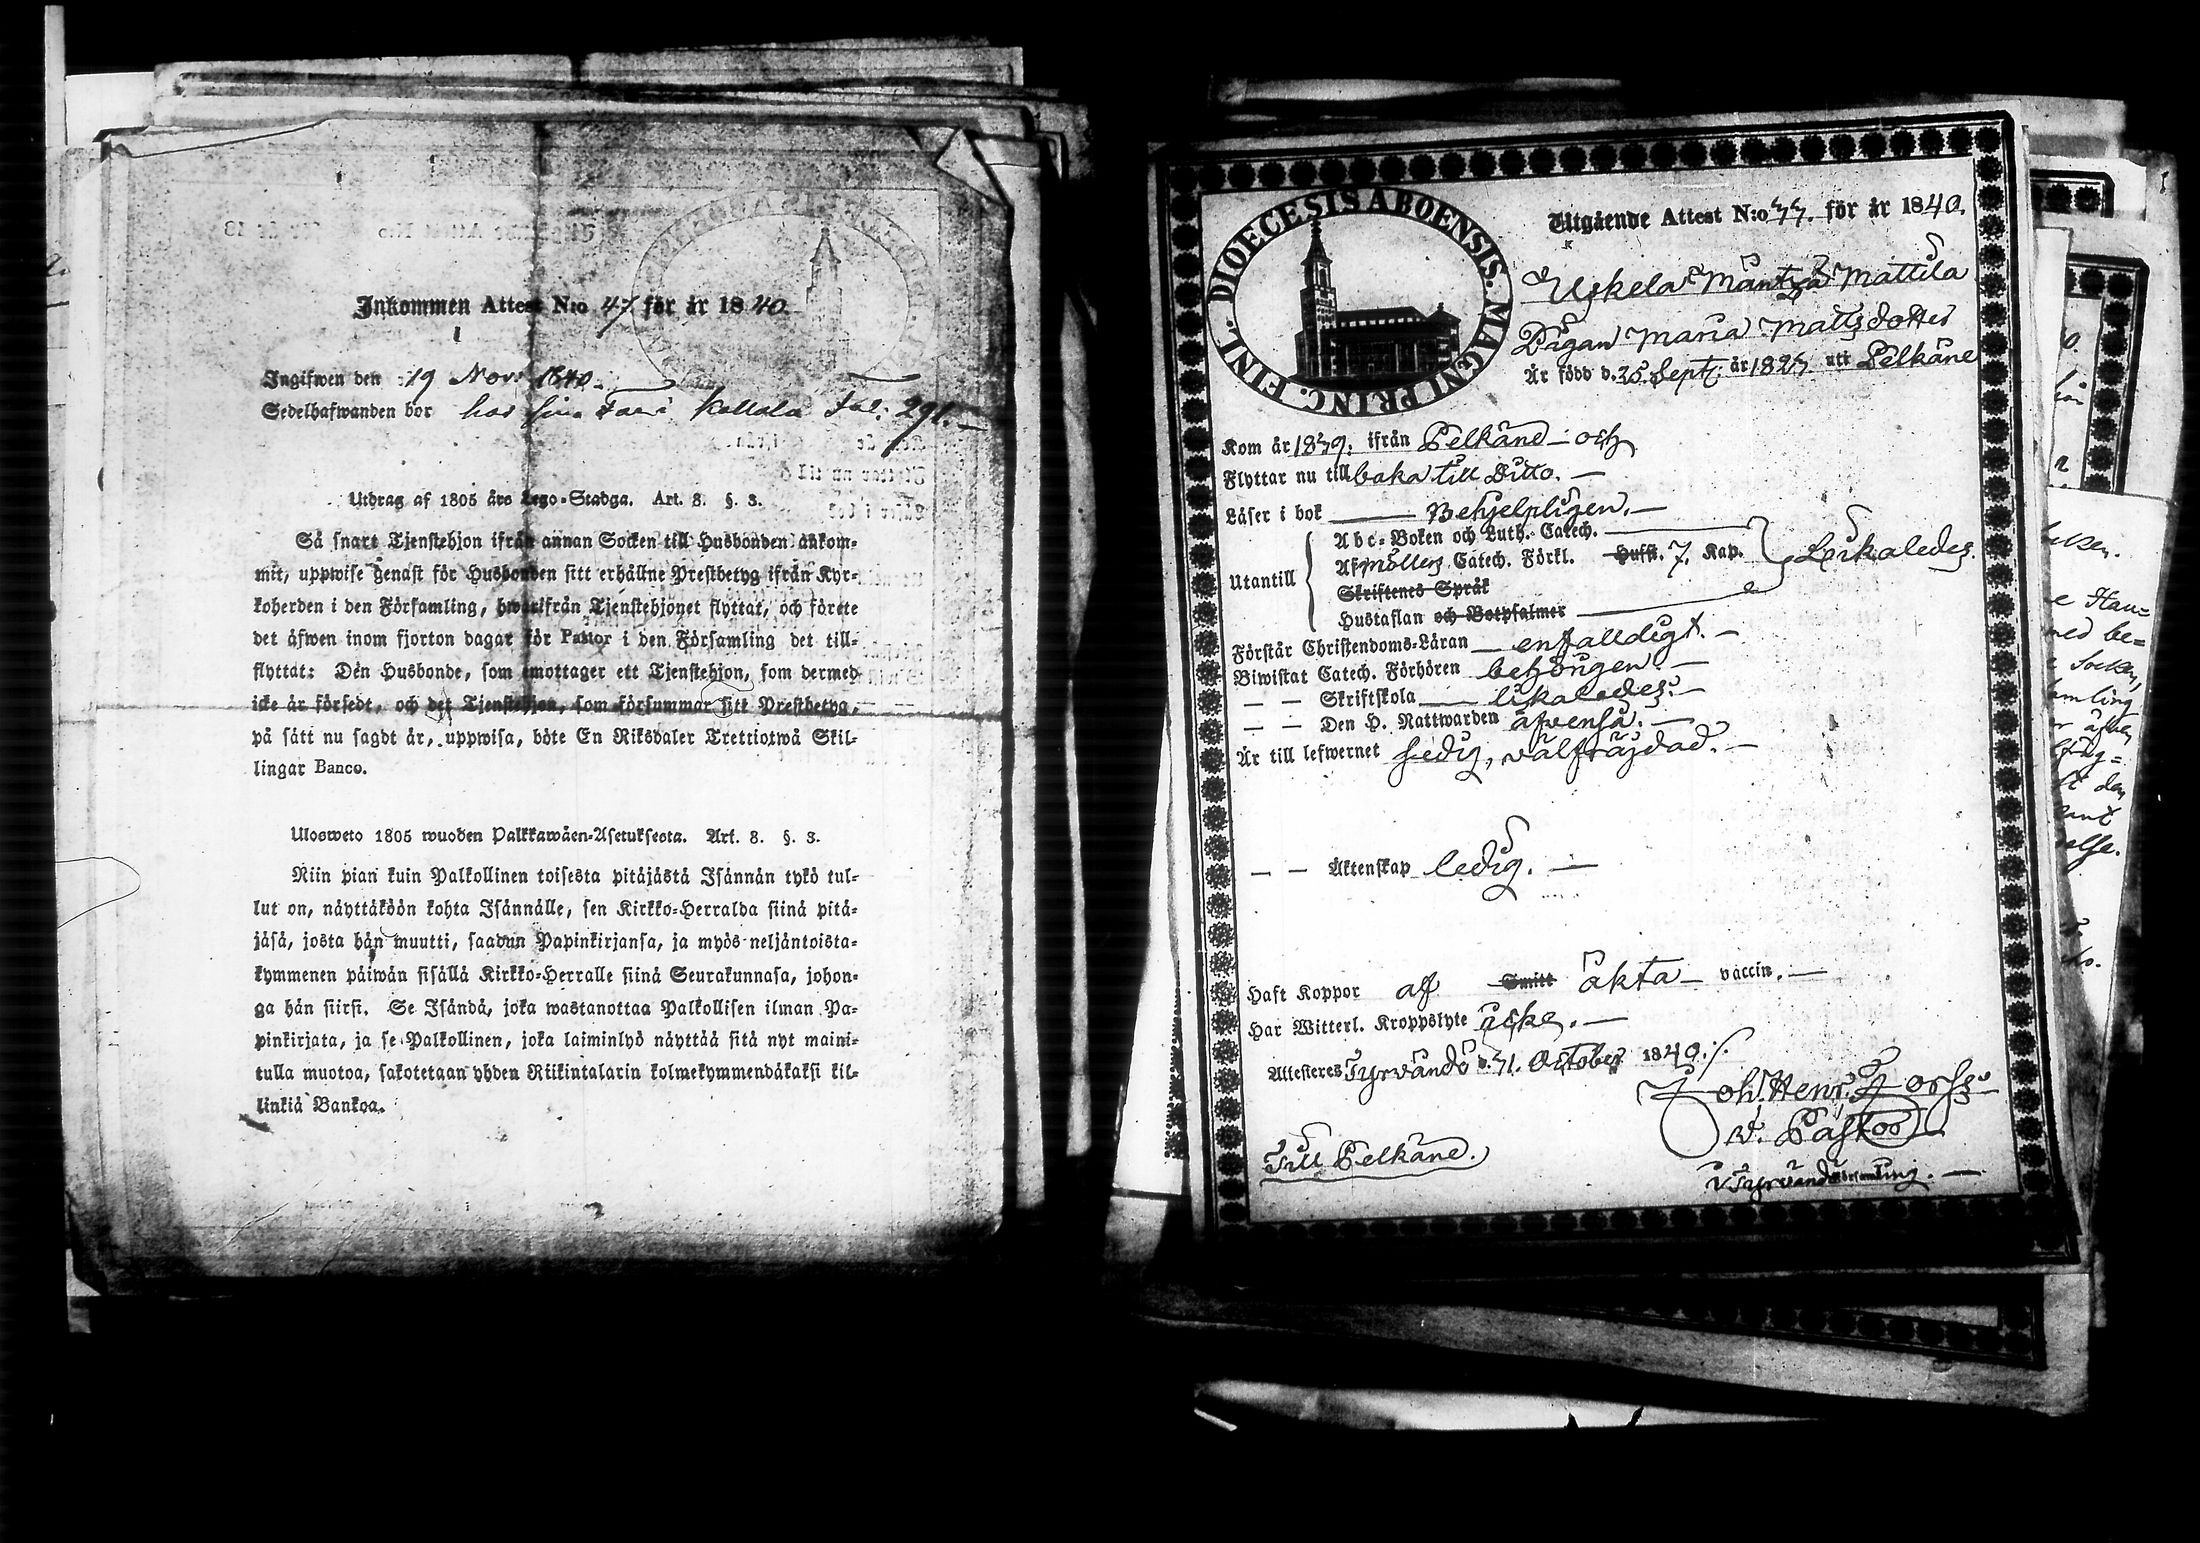 Inkommen Attest N:o 47 för år 1840.
Ingifwen den 19 Nov: 1840.
Sedelhafwanden bor hos sin Far i Kallala Fol: 291.
Utdrag af 1805 års Lego-Stadga. Art. 8. §. 3.
Så snart Tjenstehjon ifrån annan Socken till Husbonden ankom-
mit, uppwise genast för Husbonden sitt erhållne Prestbetyg ifrån Kyr-
koherden i den Församling, hwarifrån Tjenstehjonet flyttat, och förete
det äfwen inom fjorton dagar för Pastor i den Församling det till-
flyttat: Den Husbonde, som emottager ett Tjenstehjon, som dermed
icke är försedt, och det Tjenstehjon, som försummar sitt Prestbetyg,
på sätt nu sagdt är, uppwisa, böte En Riksdaler Trettiotwå Skil-
lingar Banco.
Ulosweto 1805 wuoden Palkkawäen-Asetuksesta. Art. 8. §. 3.
Niin pian kuin Palkollinen toisesta pitäjästä Isännän tykö tul-
lut on, näyttäköön kohta Isännälle, sen Kirkko-Herralda siinä pitä-
jäsä, josta hän muutti, saadun Papinkirjansa, ja myös neljäntoista-
kymmenen päiwän sisällä Kirkko-Herralle siinä Seurakunnasa, johon-
ga hän siirsi. Se Isändä, joka wastanottaa Palkollisen ilman Pa-
pinkirjata, ja se Palkollinen, joka laiminlyö näyttää sitä nyt maini-
tulla muotoa, sakotetaan yhden Riikintalarin kolmekymmendäkaksi kil-
linkiä Bankoa.
DIOECESIS ABOENSIS. MAGNI PRINC. FINL.
Utgående Attest N:o 77. för år 1840.
Uskela Mäntzä Mattila
Pigan Maria Mattsdotter
Är född d. 25. Sept: år 1825 uti Pelkäne
Kom år 1839. ifrån Pelkäne och
Flyttar nu till baka till Ditto.
Läser i bok Behjelpligen.
Utantill
Abc-Boken och Luth. Catech.
Af Möllers Catech. Förkl. Hufst. 7. Kap. Lirkaledes.
Skriftenes Språk
Hustaflan och Botpsalmer
Förstår Christendoms-Läran enfalldigt.
Biwistat Catech. Förhören behörigen.
— — Skriftskola likaledes.
— — Den H. Nattwarden äfvenså.
Är till lefwernet sedig, välfräjdad.
— — Äktenskap ledig.
Haft Koppor af Smitt äkta vaccin.
Har Witterl. Kroppslyte icke.
Attesteres Tyrvändö d. 31. October 1840.
Joh. Henr. Forss
V. Pastor
i Tyrvändö församling.
Till Pelkäne.